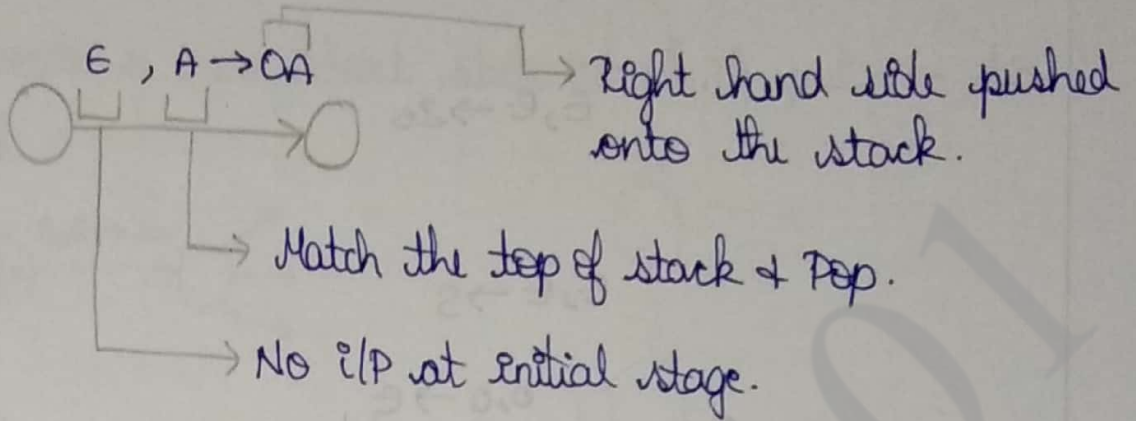 ϵ , A → 0A
Right hand side pushed
onto the stack.
Match the top of stack & Pop.
No i/p at initial stage.